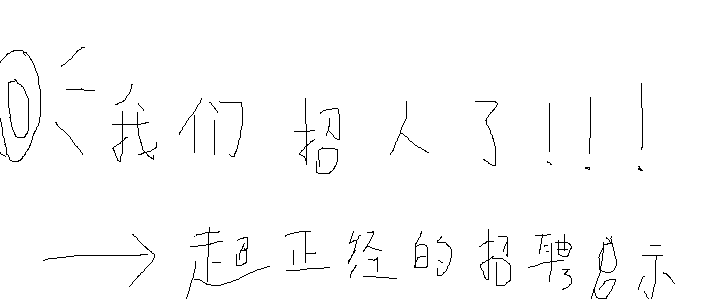 我们招人了!!!
→超正经的招聘启示